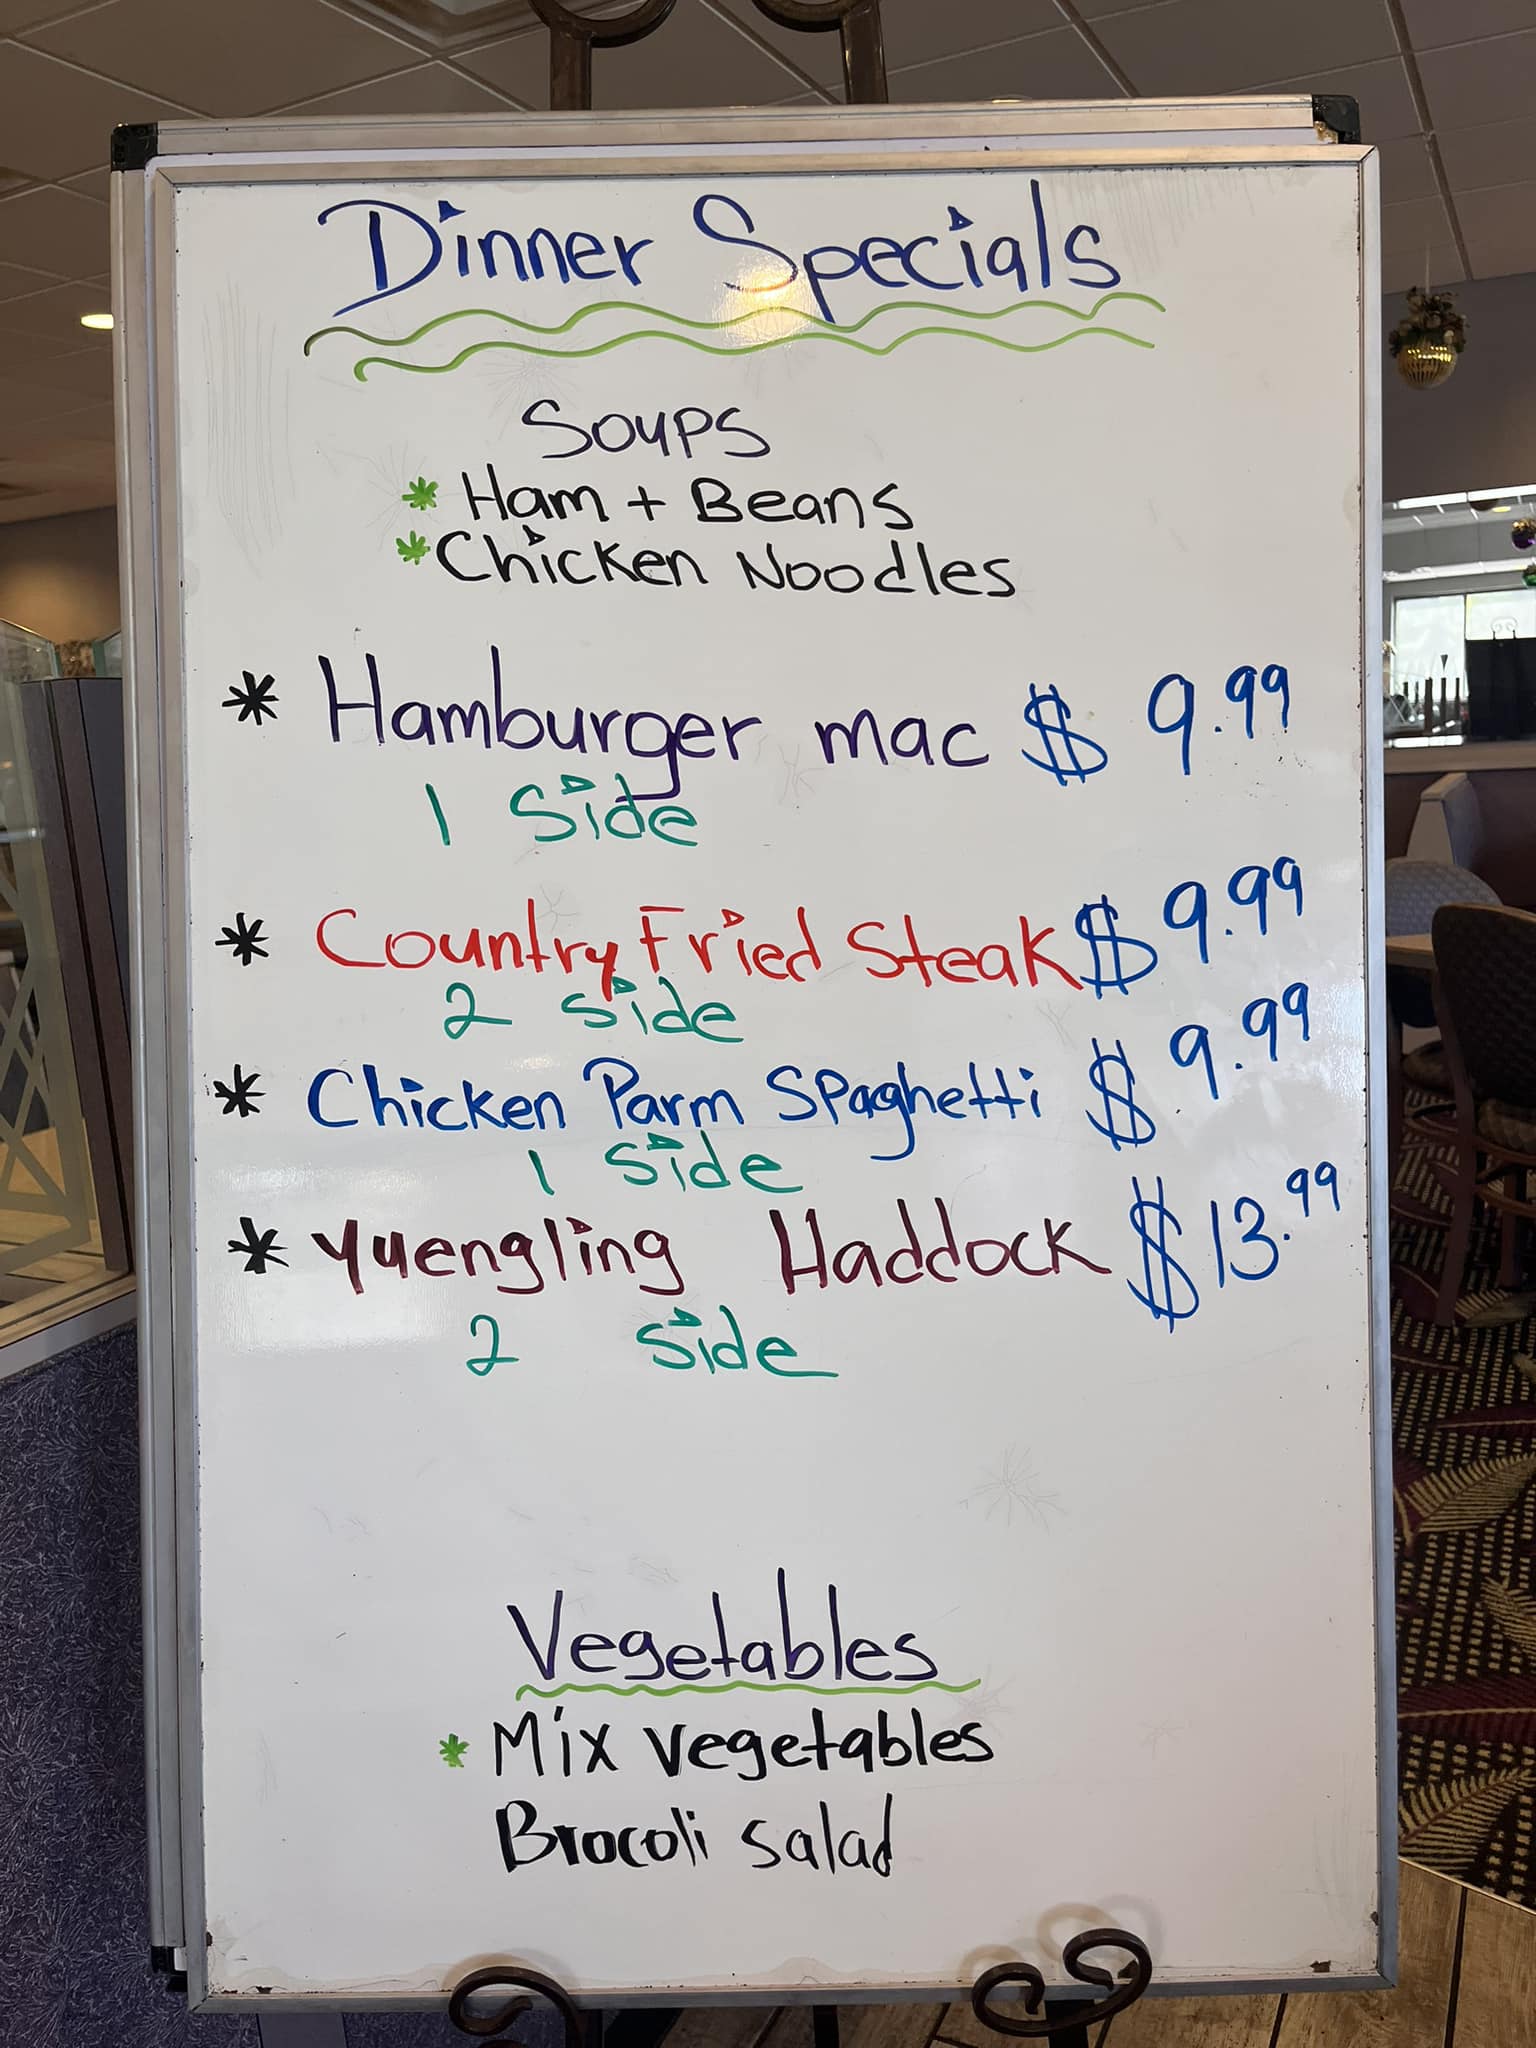 Dinner Specials
Soups
* Ham + Beans
* Chicken Noodles
* Hamburger mac $ 9.99
1 Side
* Country Fried Steak $ 9.99
2 Side
* Chicken Parm Spaghetti $ 9.99
1 Side
* Yuengling Haddock $ 13.99
2 Side
Vegetables
* Mix vegetables
Brocoli salad